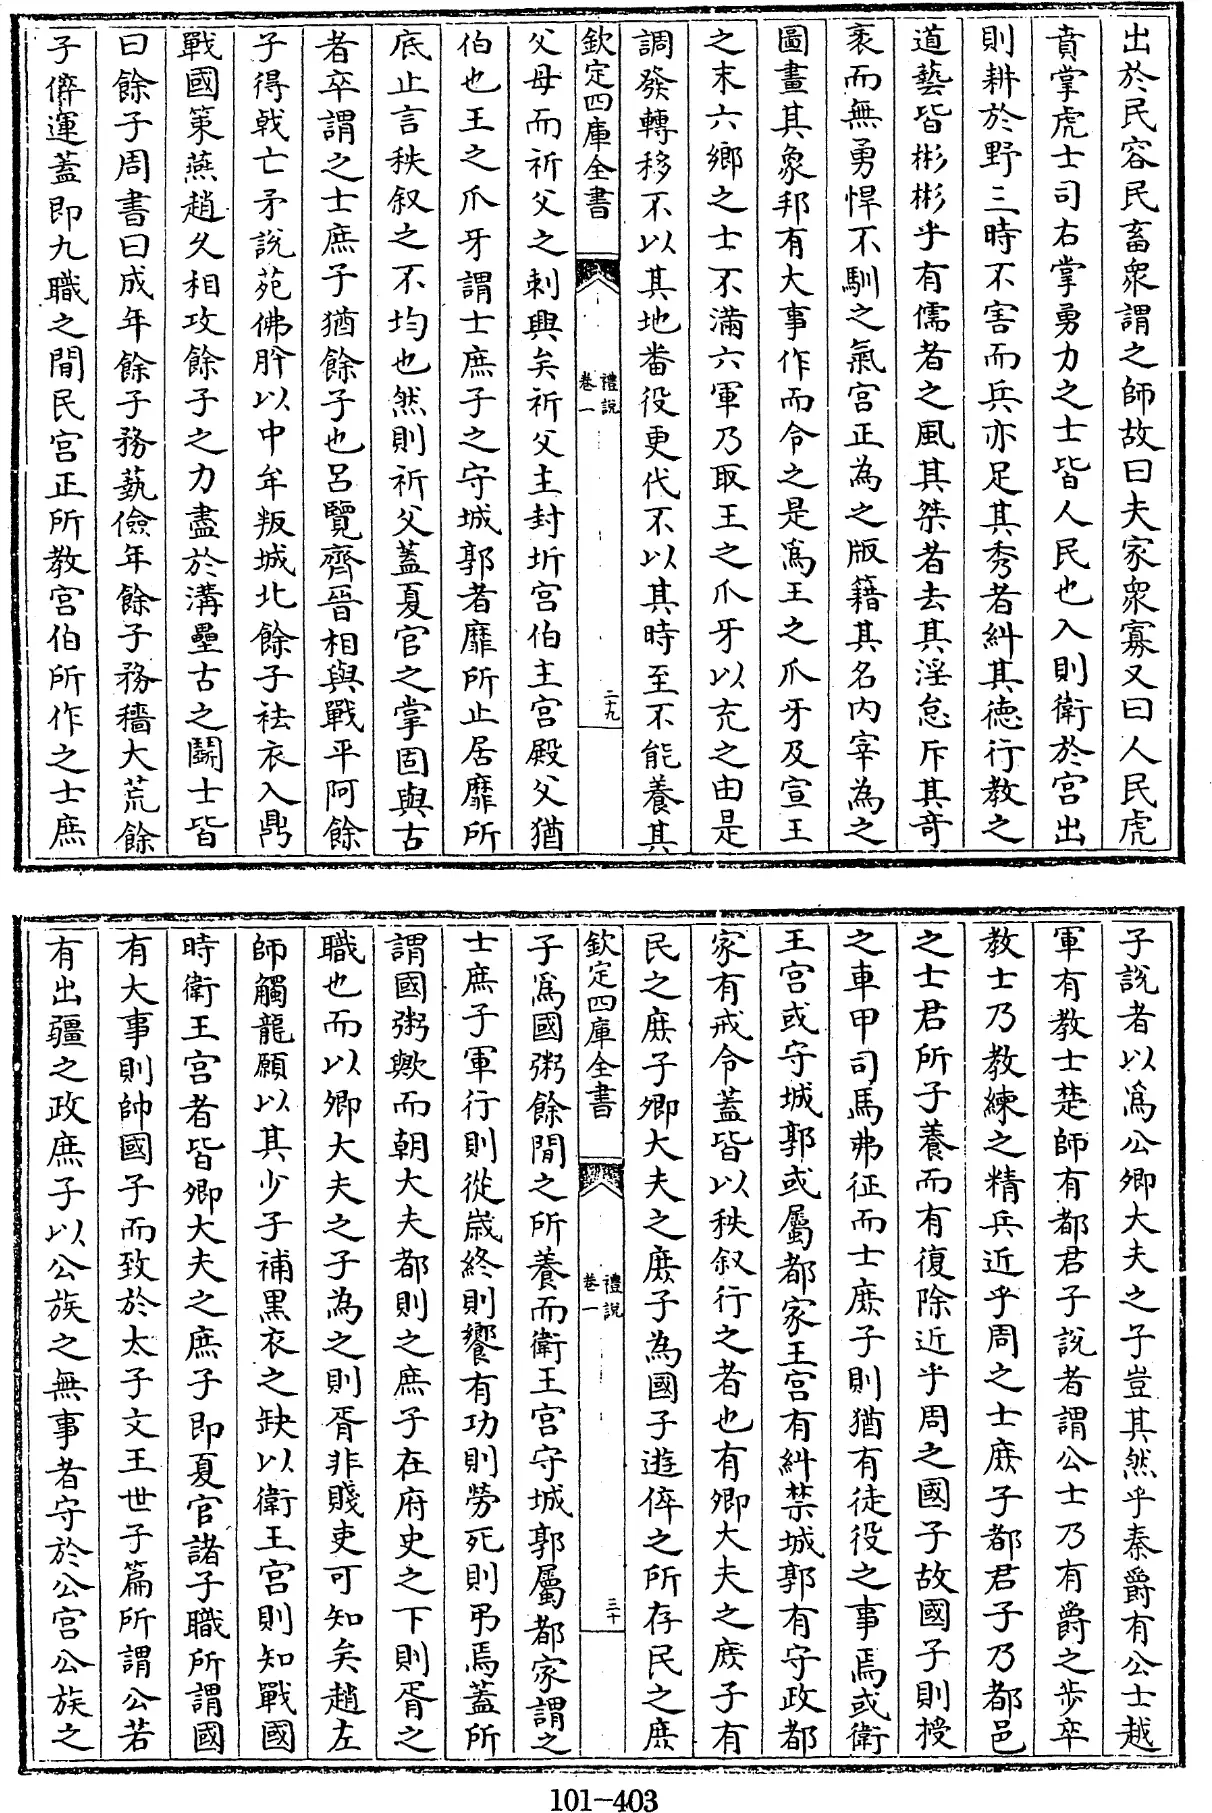 出於民容民畜衆謂之師故曰夫家衆寡又曰人民虎
賁掌虎士司右掌勇力之士皆人民也入則衛於宫出
則耕於野三時不害而兵亦足其秀者糾其徳行教之
道藝皆彬彬乎有儒者之風其桀者去其淫怠斥其竒
衺而無勇悍不馴之氣宫正為之版籍其名内宰為之
圖畫其象邦有大事作而令之是為王之爪牙及宣王
之末六鄉之士不滿六軍乃取王之爪牙以充之由是
調發轉移不以其地畨役更代不以其時至不能養其
欽定四庫全書
禮說
卷一
二十九
父母而祈父之刺興矣祈父主封圻宫伯主宫殿父猶
伯也王之爪牙謂士庶子之守城郭者靡所止居靡所
底止言秩叙之不均也然則祈父蓋夏官之掌固與古
者卒謂之士庶子猶餘子也呂覽齊晉相與戰平阿餘
子得戟亡矛說苑佛肸以中牟叛城北餘子袪衣入鼎
戰國策燕趙久相攻餘子之力盡於溝壘古之鬬士皆
曰餘子周書曰成年餘子務蓺儉年餘子務穡大荒餘
子倅運蓋即九職之間民宫正所教宫伯所作之士庶
子說者以為公卿大夫之子豈其然乎秦爵有公士越
軍有教士楚師有都君子說者謂公士乃有爵之步卒
教士乃教練之精兵近乎周之士庶子都君子乃都邑
之士君所子養而有復除近乎周之國子故國子則授
之車甲司馬弗征而士庶子則猶有徒役之事焉或衛
王宫或守城郭或屬都家王宫有糾禁城郭有守政都
家有戒令蓋皆以秩叙行之者也有卿大夫之庶子有
民之庶子卿大夫之庶子為國子遊倅之所存民之庶
欽定四庫全書
禮說
卷一
三十
子為國粥餘閒之所養而衛王宫守城郭屬都家謂之
士庶子軍行則從嵗終則饗有功則勞死則弔焉蓋所
謂國粥歟而朝大夫都則之庶子在府史之下則胥之
職也而以卿大夫之子為之則胥非賤吏可知矣趙左
師觸龍願以其少子補黒衣之缺以衛王宫則知戰國
時衛王宫者皆卿大夫之庶子即夏官諸子職所謂國
有大事則帥國子而致於太子文王世子篇所謂公若
有出疆之政庶子以公族之無事者守於公宫公族之
101-403